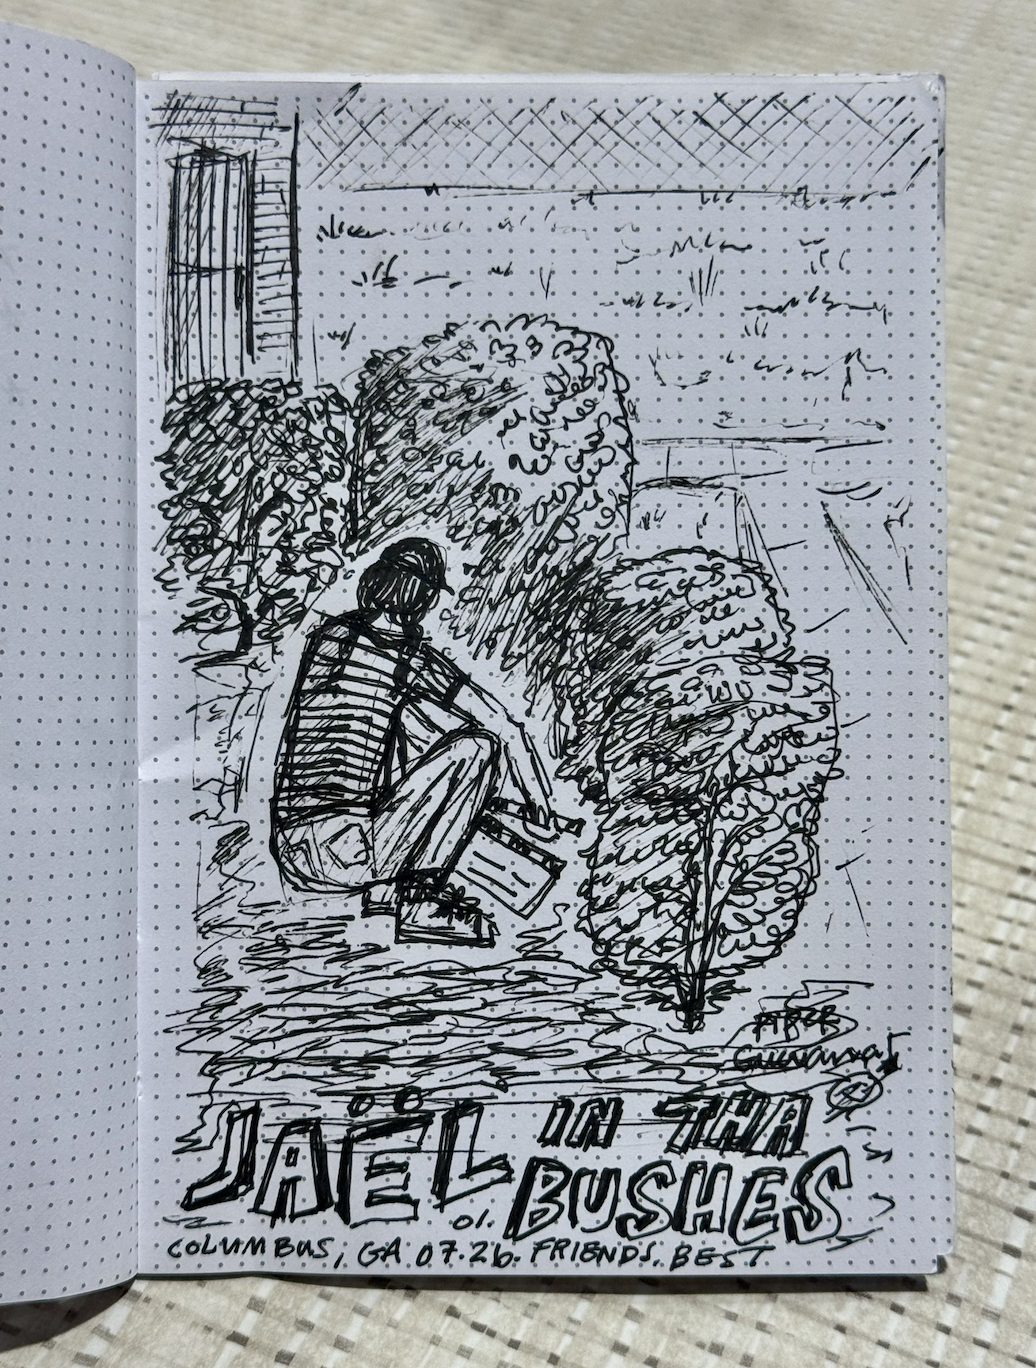 JAËL IN THA
BUSHES
01.
COLUMBUS, GA 07.26. FRIENDS. BEST